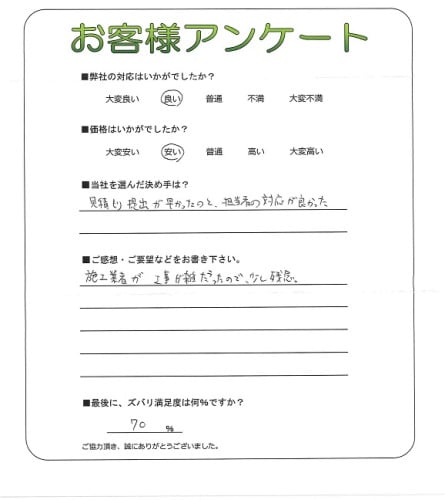 お客様アンケート
■弊社の対応はいかがでしたか?
大変良い 良い 普通 不満 大変不満
■価格はいかがでしたか?
大変安い 安い 普通 高い 大変高い
■当社を選んだ決め手は?
見積り提出が早かったのと、担当者の対応が良かった
■ご感想・ご要望などをお書き下さい。
施工業者が 工事が雑だったので、少し残念。
■最後に、ズバリ満足度は何%ですか?
70 %
ご協力頂き、誠にありがとうございました。